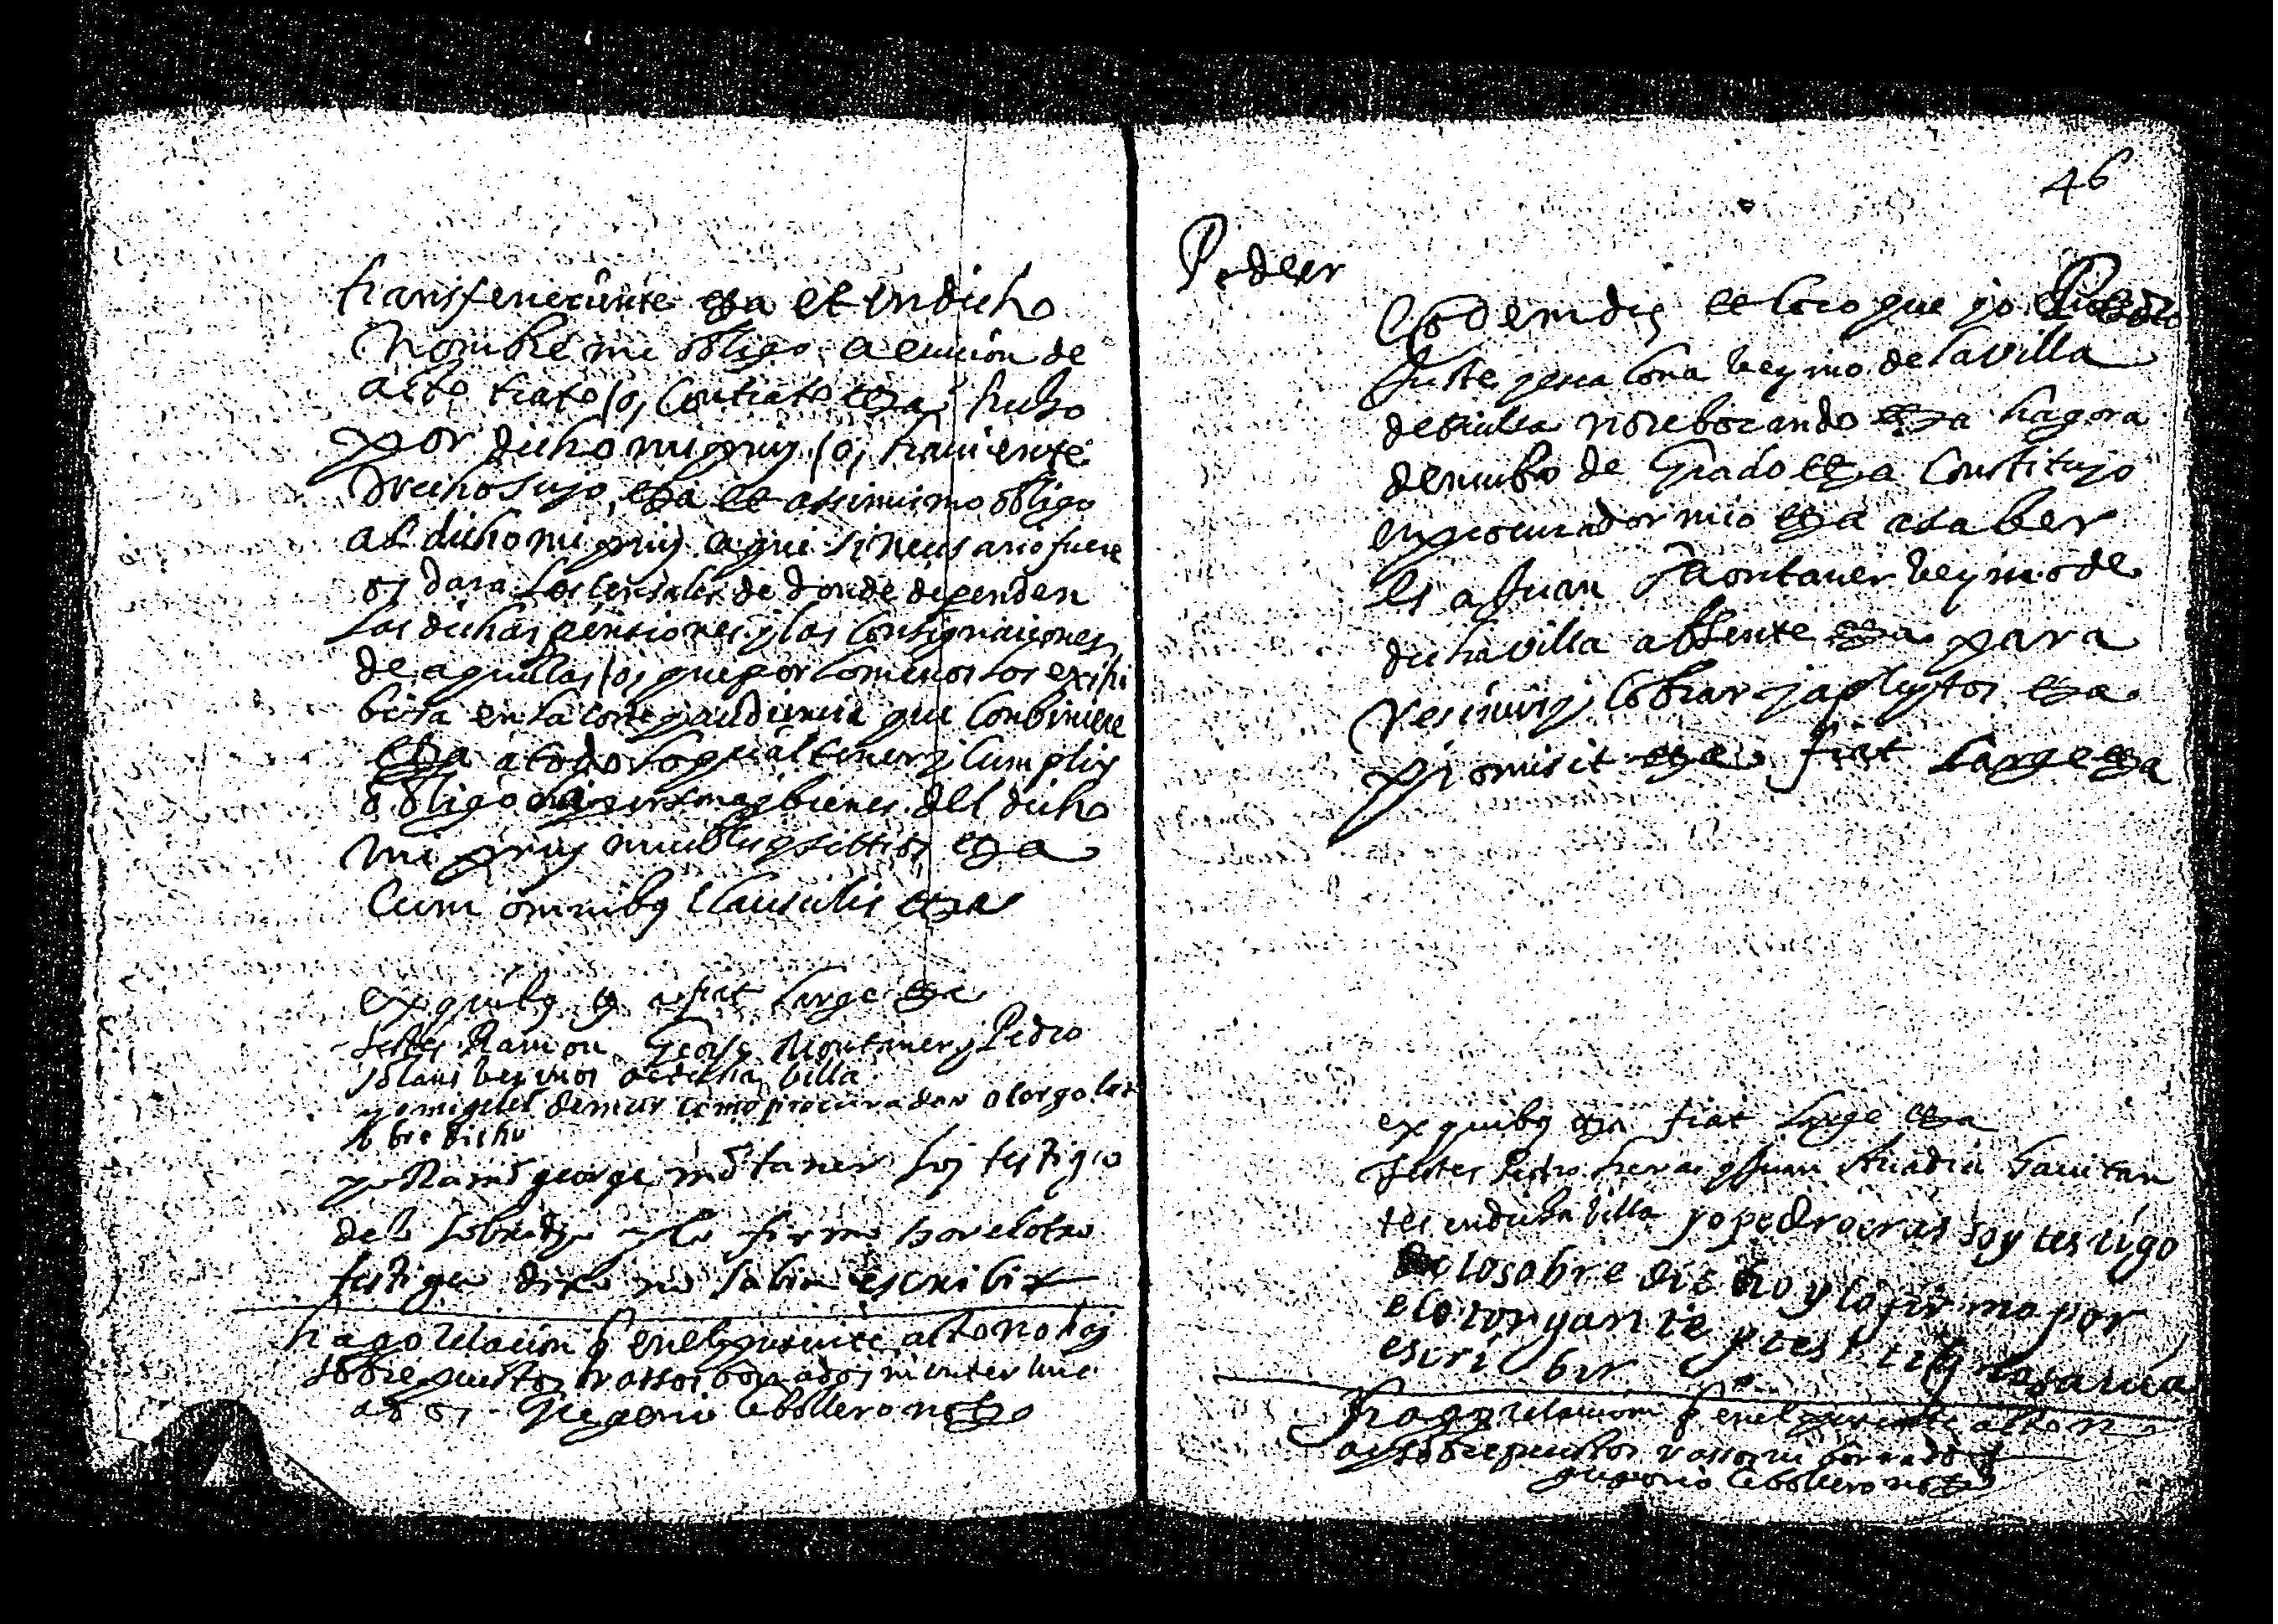 transfeneciente etza et en dicho
Nombre mi obligo a euicion de
acto trato /o, Contrato etza hecho
por dicho mi prin /o, hauiente
Drecho suyo etza et assimismo obligo
al dicho mi prin a que si necesario fuere
os dara los censales de donde dependen
las dichas pensiones y las consignaciones
de aquellas /o, que por lo menos los exhi
bira en la corte y audiencia que conbiniere
etza a todo lo qual tener y cumplir
obligo bienes del dicho
mi prin muebles y sittios etza
Cum omnibus clausulis etza
ex quibus fiat large etza
testes Ramon George Montaner y Pedro
Solans vezinos de dicha villa
yo miguel demur como procurador otorgo lo
sobre dicho
yo Ramō george mōtaner soy testigo
de lo sobredicho y lo firmo por el otro
testigo dixo no sabia escribir
hago relacion q en el presente acto no hay
sobrepuestos rassos borrados ni interline
ados Gregorio Cebollero noto
46
Poder
Eodem die et loco que yo
Juste vezino de la villa
de no rebocando etza hagora
de nuebo de Grado etza Constituyo
en procurador mio etza a saber
es a Juan Montaner vezino de
dicha villa absente etza para
resciuir y cobrar y a pleytos etza
promisit etza fiat large etza
ex quibus etza fiat large etza
testes Pedro heras y Juan hauitan
tes en dicha villa yo pedro eras soy testigo
de lo sobre dicho y lo firmo por
el otorgante y testi no sauia
escribir
hago relacion q en el presente acto no
ay sobrepuestos rassos ni borrados
gregorio Cebollero noto